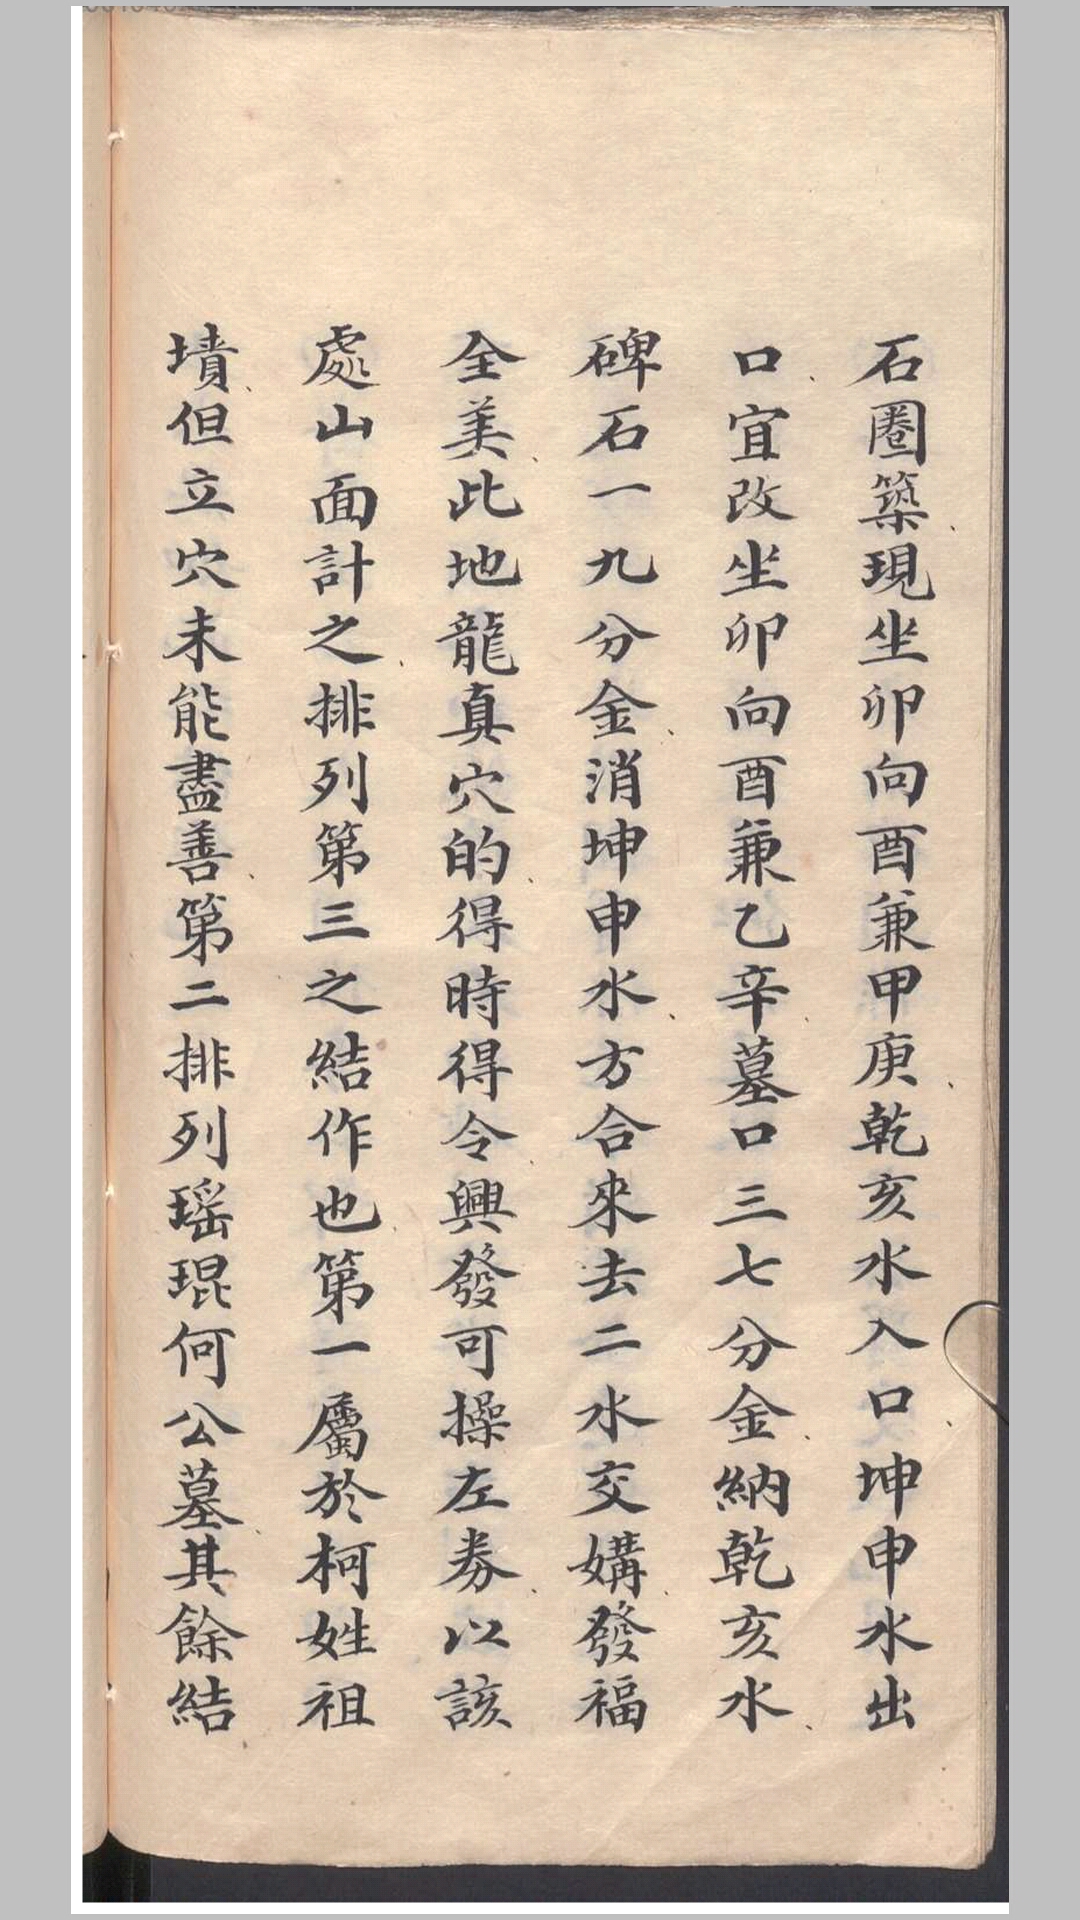 石圈築、現坐卯向酉兼甲庚、乾亥水入口、坤申水出
口、宜改坐卯向酉兼乙辛、墓口三七分金、納乾亥水、
碑石一九分金、消坤申水、方合來去二水交媾、發福
全美、此地龍真穴的、得時得令、興發可操左券、以該
處山面計之、排列第三之結作也、第一屬於柯姓祖
墳、但立穴未能盡善第二排列瑶琨何公墓、其餘結